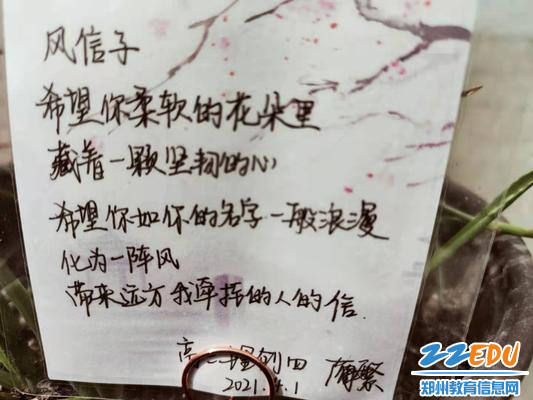 风信子
希望你柔软的花朵里
藏着一颗坚韧的心
希望你如你的名字一般浪漫
化为一阵风
带来远方我牵挂的人的信.
高 理创四
2021. .1
ZZEDU
郑州教育信息网